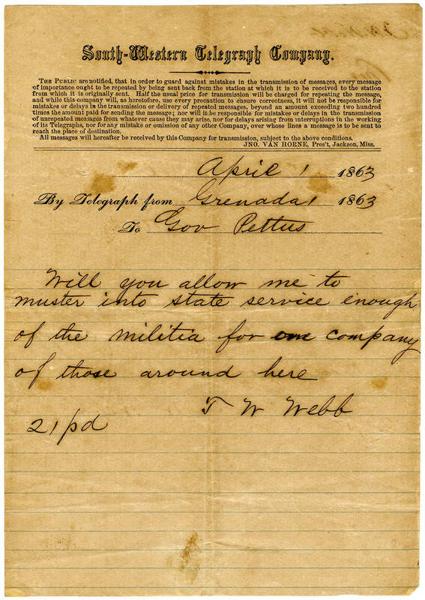 South-Western Telegraph Company.
THE PUBLIC are notified, that in order to guard against mistakes in the transmission of messages, every message
of importance ought to be repeated by being sent back from the station at which it is to be received to the station
from which it is originally sent. Half the usual price for transmission will be charged for repeating the message,
and while this company will, as heretofore, use every precaution to ensure correctness, it will not be responsible for
mistakes or delays in the transmission or delivery of repeated messages, beyond an amount exceeding two hundred
times the amount paid for sending the message; nor will it be responsible for mistakes or delays in the transmission
of unrepeated messages from whatever cause they may arise, nor for delays arising from interruptions in the working
of its Telegraphs, nor for any mistake or omission of any other Company, over whose lines a message is to be sent to
reach the place of destination.
All messages will hereafter be received by this Company for transmission, subject to the above conditions.
JNO. VAN HORNE, Pres't, Jackson, Miss.
April 1 1863
By Telegraph from Grenada 1 1863
To Gov Pettus
Will you allow me to
muster into state service enough
of the militia for one company
of those around here
T W Webb
21 pd